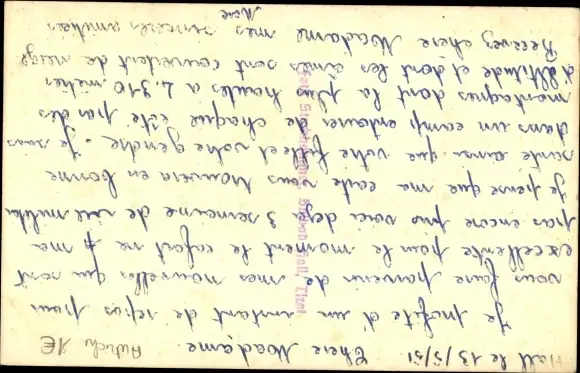 Hall le 13/5/51 Chere Madame. Autriche 1€
Je profite d'un instant de repos pour
vous faire parvenir de mes nouvelles qui sont
excellente pour le moment le cafard ne m'a
pas encore pris voici deja 3 semaine de vie militai
Je pense que ma carte vous trouvera en bonne
sante ainsi que votre fille et votre gendre. Je suis
dans un camp entourer de chaque côté par des
montagnes dont la plus hautes a 2.310 metres
d'altitude et dont les cimes sont couvertent de neige
Recevez chere Madame mes sinceres amities
Tirol